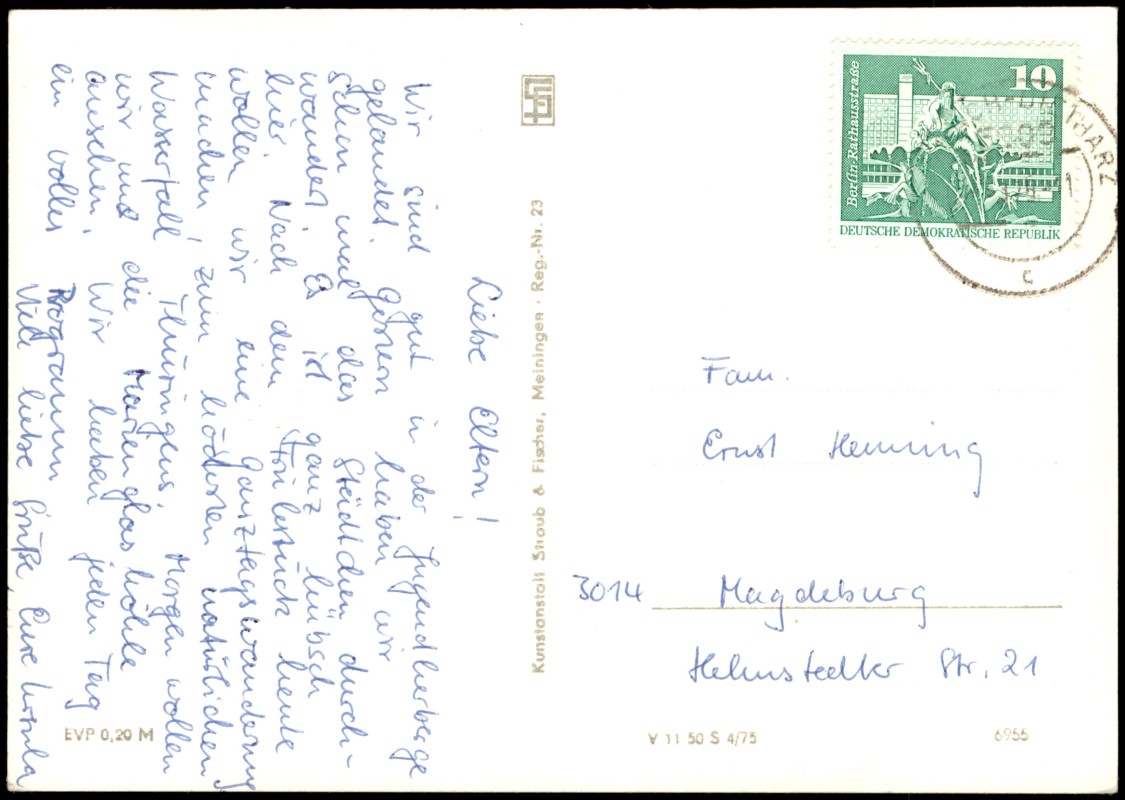 Liebe Eltern!
Wir sind gut in der Jugendherberge
gelandet. Gestern haben wir
schon mal das Städtchen durch-
wandert. Es ist ganz hübsch
hier. Nach dem Frühstück heute
wollen wir eine Ganztagswanderung
machen, zum höchsten natürlichen
Wasserfall Thüringens. Morgen wollen
wir uns die Marienglashöhle
ansehen. Wir haben jeden Tag
ein volles Programm
Viele liebe Grüße, Eure Ursula
EVP 0,20 M
Kunstanstalt Straub & Fischer, Meiningen · Reg.-Nr. 23
10
Berlin-Rathausstraße
DEUTSCHE DEMOKRATISCHE REPUBLIK
c
Fam.
Ernst Henning
3014 Magdeburg
Helmstedter Str. 21
V 11 50 S 4/75
6955